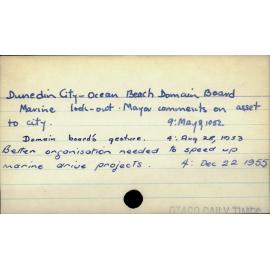 Dunedin City - Ocean Beach Domain Board
Marine look-out. Mayor comments on asset
to city. 9: May 9, 1952
Domain board's gesture. 4: Aug 28, 1953
Better organisation needed to speed up
marine drive projects. 4: Dec 22 1955
OTAGO DAILY TIMES